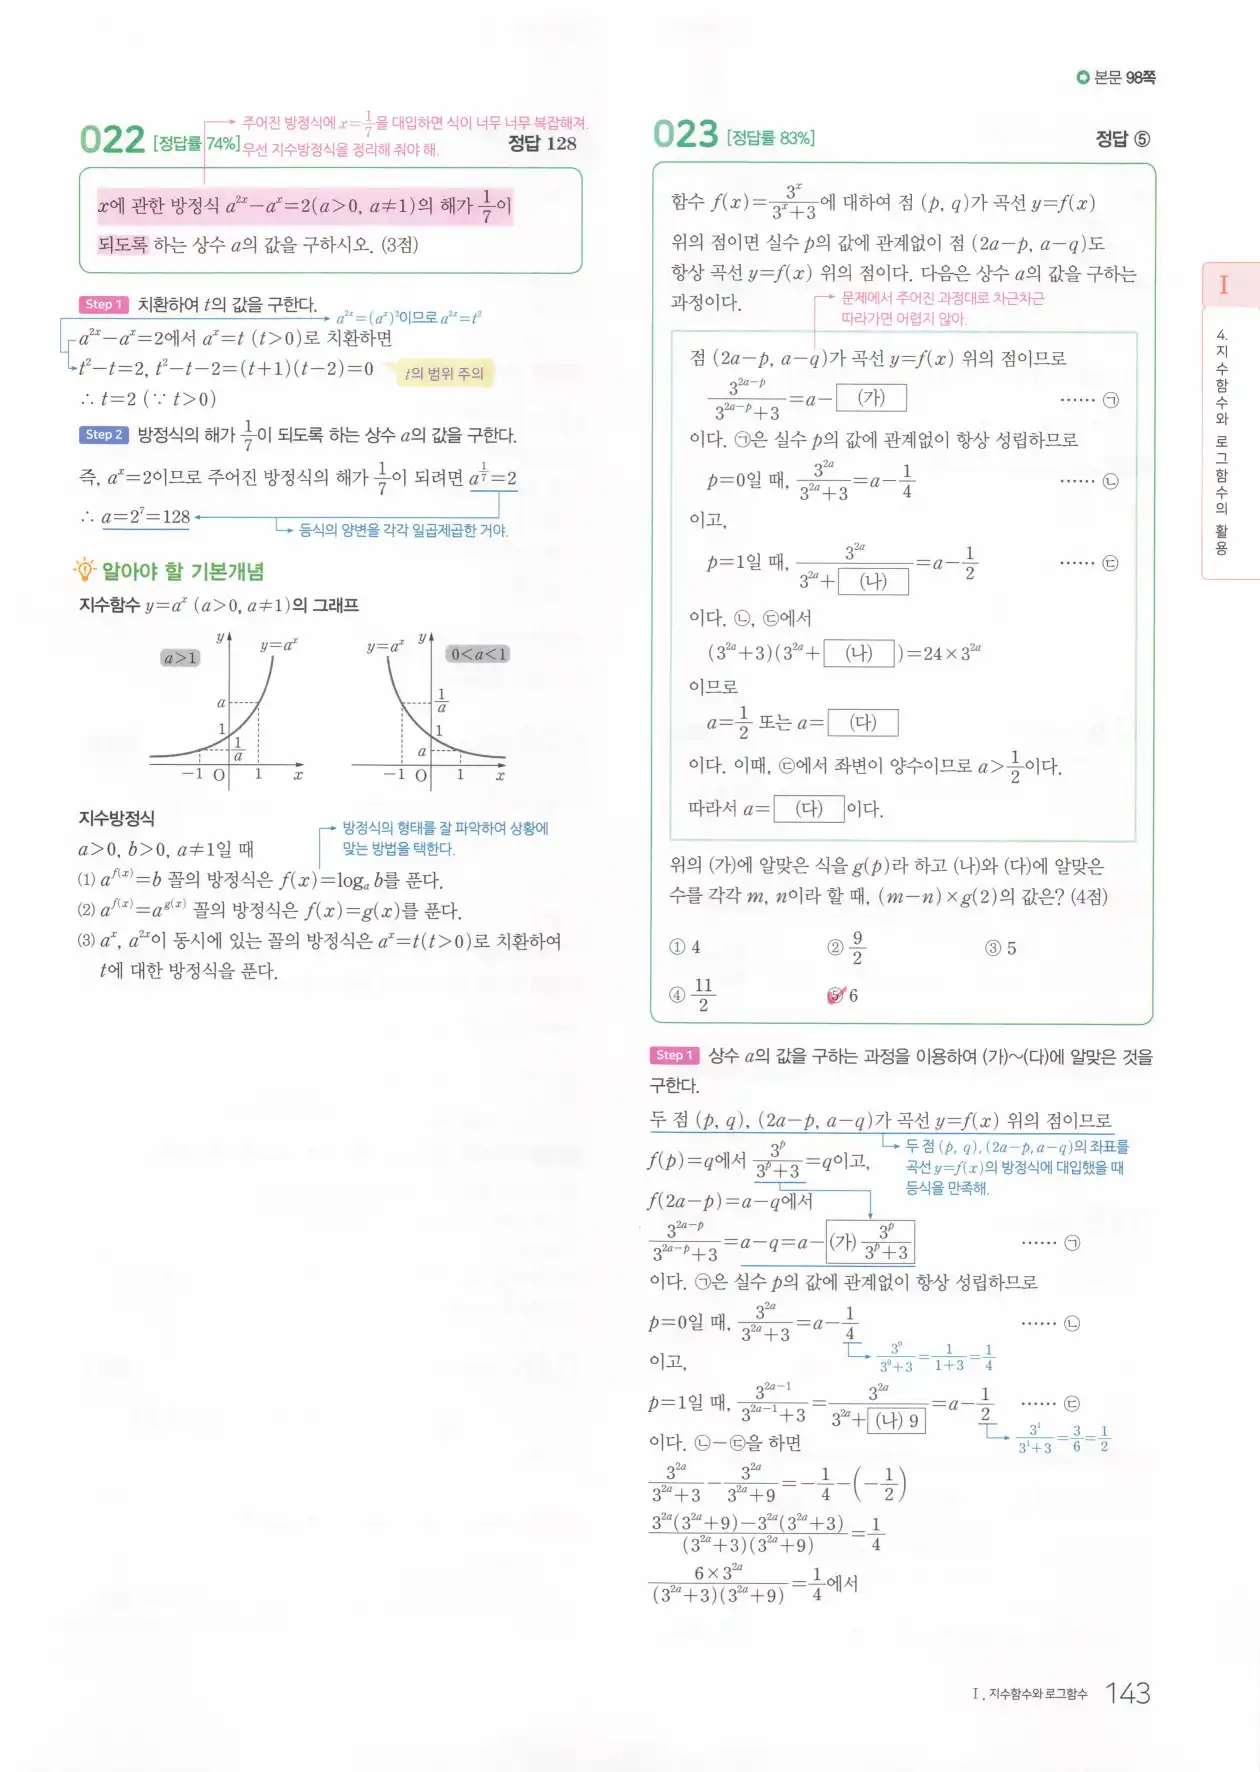 본문 98쪽
022 [정답률 74%] 정답 128
주어진 방정식에 x=1/7을 대입하면 식이 너무 너무 복잡해져.
우선 지수방정식을 정리해 줘야 해.
x에 관한 방정식 a^{2x}-a^x=2(a>0, a≠1)의 해가 1/7이
되도록 하는 상수 a의 값을 구하시오. (3점)
Step 1 치환하여 t의 값을 구한다.
a^{2x}=(a^x)^2이므로 a^{2x}=t^2
a^{2x}-a^x=2에서 a^x=t (t>0)로 치환하면
t^2-t=2, t^2-t-2=(t+1)(t-2)=0
t의 범위 주의
∴ t=2 (∵ t>0)
Step 2 방정식의 해가 1/7이 되도록 하는 상수 a의 값을 구한다.
즉, a^x=2이므로 주어진 방정식의 해가 1/7이 되려면 a^{1/7}=2
∴ a=2^7=128
등식의 양변을 각각 일곱제곱한 거야.
알아야 할 기본개념
지수함수 y=a^x (a>0, a≠1)의 그래프
a>1 y y=a^x a 1 1/a -1 O 1 x
y=a^x y 0<a<1 1/a 1 a -1 O 1 x
지수방정식
방정식의 형태를 잘 파악하여 상황에
맞는 방법을 택한다.
a>0, b>0, a≠1일 때
(1) a^{f(x)}=b 꼴의 방정식은 f(x)=log_a b를 푼다.
(2) a^{f(x)}=a^{g(x)} 꼴의 방정식은 f(x)=g(x)를 푼다.
(3) a^x, a^{2x}이 동시에 있는 꼴의 방정식은 a^x=t(t>0)로 치환하여
t에 대한 방정식을 푼다.
023 [정답률 83%] 정답 ⑤
함수 f(x)=3^x/(3^x+3)에 대하여 점 (p, q)가 곡선 y=f(x)
위의 점이면 실수 p의 값에 관계없이 점 (2a-p, a-q)도
항상 곡선 y=f(x) 위의 점이다. 다음은 상수 a의 값을 구하는
과정이다.
문제에서 주어진 과정대로 차근차근
따라가면 어렵지 않아.
점 (2a-p, a-q)가 곡선 y=f(x) 위의 점이므로
3^{2a-p}/(3^{2a-p}+3)=a- (가) …… ㉠
이다. ㉠은 실수 p의 값에 관계없이 항상 성립하므로
p=0일 때, 3^{2a}/(3^{2a}+3)=a-1/4 …… ㉡
이고,
p=1일 때, 3^{2a}/(3^{2a}+ (나))=a-1/2 …… ㉢
이다. ㉡, ㉢에서
(3^{2a}+3)(3^{2a}+ (나) )=24×3^{2a}
이므로
a=1/2 또는 a= (다)
이다. 이때, ㉢에서 좌변이 양수이므로 a>1/2이다.
따라서 a= (다) 이다.
위의 (가)에 알맞은 식을 g(p)라 하고 (나)와 (다)에 알맞은
수를 각각 m, n이라 할 때, (m-n)×g(2)의 값은? (4점)
① 4 ② 9/2 ③ 5
④ 11/2 ⑤ 6
Step 1 상수 a의 값을 구하는 과정을 이용하여 (가)~(다)에 알맞은 것을
구한다.
두 점 (p, q), (2a-p, a-q)가 곡선 y=f(x) 위의 점이므로
두 점 (p, q), (2a-p, a-q)의 좌표를
곡선 y=f(x)의 방정식에 대입했을 때
등식을 만족해.
f(p)=q에서 3^p/(3^p+3)=q이고,
f(2a-p)=a-q에서
3^{2a-p}/(3^{2a-p}+3)=a-q=a- (가) 3^p/(3^p+3) …… ㉠
이다. ㉠은 실수 p의 값에 관계없이 항상 성립하므로
p=0일 때, 3^{2a}/(3^{2a}+3)=a-1/4 …… ㉡
3^0/(3^0+3)=1/(1+3)=1/4
이고,
p=1일 때, 3^{2a-1}/(3^{2a-1}+3)=3^{2a}/(3^{2a}+ (나) 9)=a-1/2 …… ㉢
3^1/(3^1+3)=3/6=1/2
이다. ㉡-㉢을 하면
3^{2a}/(3^{2a}+3)-3^{2a}/(3^{2a}+9)=-1/4-(-1/2)
{3^{2a}(3^{2a}+9)-3^{2a}(3^{2a}+3)}/{(3^{2a}+3)(3^{2a}+9)}=1/4
6×3^{2a}/{(3^{2a}+3)(3^{2a}+9)}=1/4에서
I
4. 지수함수와 로그함수의 활용
I. 지수함수와 로그함수 143